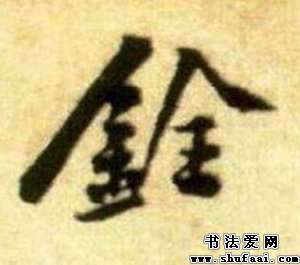 銓
书法爱网
www.shufaai.com